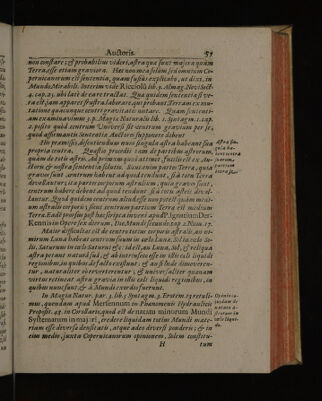 Auctoris. 57
non constare; & probabilius videri, astra quæ sunt majora quàm
Terra, esse etiam graviora. Hæc non mea solum, sed omnium Co-
pernicanorum est sententia, quam fusius explicabo, ut dixi, in
Mundo Mirabili. Interim vide Ricciolū lib. 9. Almag. Novi Sect.
4. cap. ubi latè de eare tractat. Quòd quidem sententia si ve-
ra est, jam apparet frustra laborare, qui probant Terram ex mu-
tatione quacunque centri gravitatis nutare. Quam sententi-
am examinavimus 3. p. Magiæ Naturalis lib. 1. Syntagm. 1. cap.
2. posito quòd centrum Universi sit centrum gravium per se;
quod affirmanti Sententia Auctore supponere debent
His præmissis, difficultas minus singula astra habeant sua
propria centra. Quæstio procedit tam de partibus astrorum,
quàm de totis astris. Ad primum quod attinet, facilis est ex Au-
ctore & nostra sententia solutio. Si enim partes Terræ, quia
graves sunt centrum habent ad quod tendunt, si à toto Terra
devellantur; ita partes corporum astralium, quia graves sunt,
centrum habere debent ad quod tendant si à toto astris devel-
lantur. Quòd quidem centrum aliud esse non potest quàm uni-
um astralis corporis; sicut centrum partium Terræ est medium
Terræ. Eadē prorsus post hæc scripta inveni apud P. Ignatium Der-
Kennis in Opere sex dierum, De Mundi secundo cap. 2. Num. 17.
Major difficultas est de centro totius corporis astralis, an ni-
mirum Luna habeat centrum suum in cælo Lunæ, Sol in cælo So-
lis, Saturnus in cælo Saturni &c. id est, an Luna, Sol, & reliqua
astra petant naturâ suâ, & ad intrinseco esse in illis cæli liquidi
regionibus, in quibus de facto existunt; & an si inde dimoveren-
tur, naturaliter eò reverterentur; & universaliter quænam
virtus retineat astra gravia in illis cæli liquidi regionibus, in
quibus nunc sunt, & à Mundi exordio fuerunt.
In Magia Natur. par. 3. lib. 3. Syntagm. 3. Erotem. 13. retuli-
mus, quendam apud Mersennum in Phænomenis Hydraulicis
Proposit. 45. in Corollario, quod est de natura minorum Mundi
Systematum in majori, credere liquidam totius Mundi mate-
riam esse diversa densitatis, atque adeo diversi ponderis; & in
ejus medio, juxta Copernicanorum opinionem, Solem constitu-
H tum